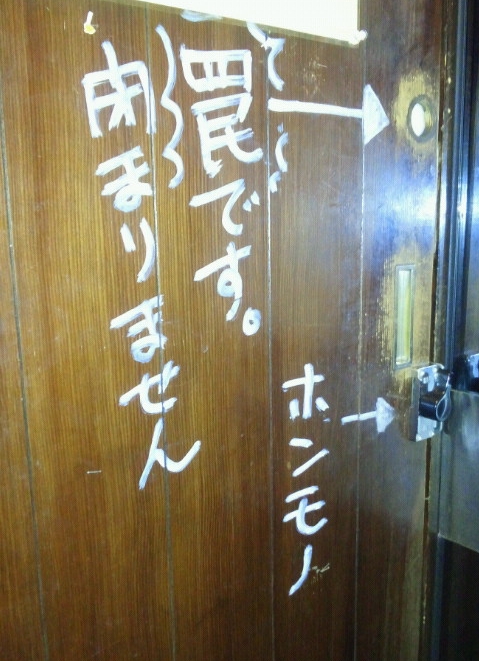 罠です。
閉まりません
ホンモノ